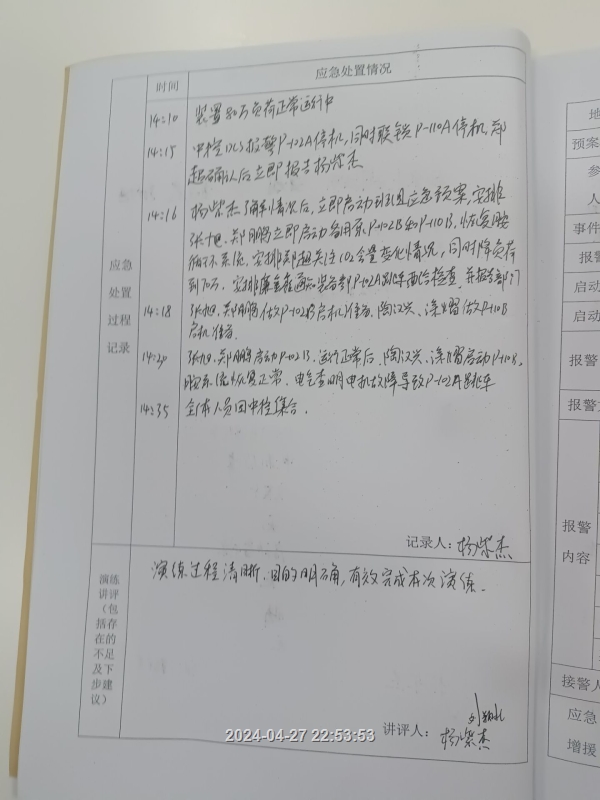 时间
应急处置情况
14:10
装置80万负荷正常运行中
14:15
中控DCS报警P-102A停机,同时联锁P-110A停机,郑
超确认后立即报告杨紫杰
14:16
杨紫杰了解情况后,立即启动班组应急预案,安排
张旭、郑鹏立即启动备用泵P-102B和P-110B,恢复胺
循环系统,安排郑超关注CO2含量变化情况,同时降负荷
到70万,安排 通知 P-102A跳车配合检查,并报告部门
14:18
张旭、郑鹏做P-102B启机准备,陶汉兴、 做P-110B
启机准备
14:20
张旭、郑鹏启动P-102B,运行正常后,陶汉兴、 启动P-110B,
胺系统恢复正常。电气查明电机故障导致P-102A跳车
14:35
全体人员回中控集合。
应急
处置
过程
记录
记录人:杨紫杰
演练
讲评
(包
括存
在的
不足
及下
步建
议)
演练过程清晰,目的明确,有效完成本次演练。
讲评人:杨紫杰
2024-04-27 22:53:53
地
预案
参
人
事件
报警
启动
启动
报警
报警方
报警
内容
接警人
应急
增援